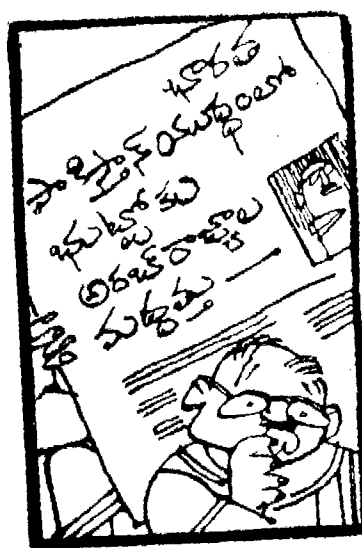 భారత
పాకిస్తాన్ యుద్ధంలో
భుట్టోకు
అరబ్ రాజ్యాల
మద్దత్తు —